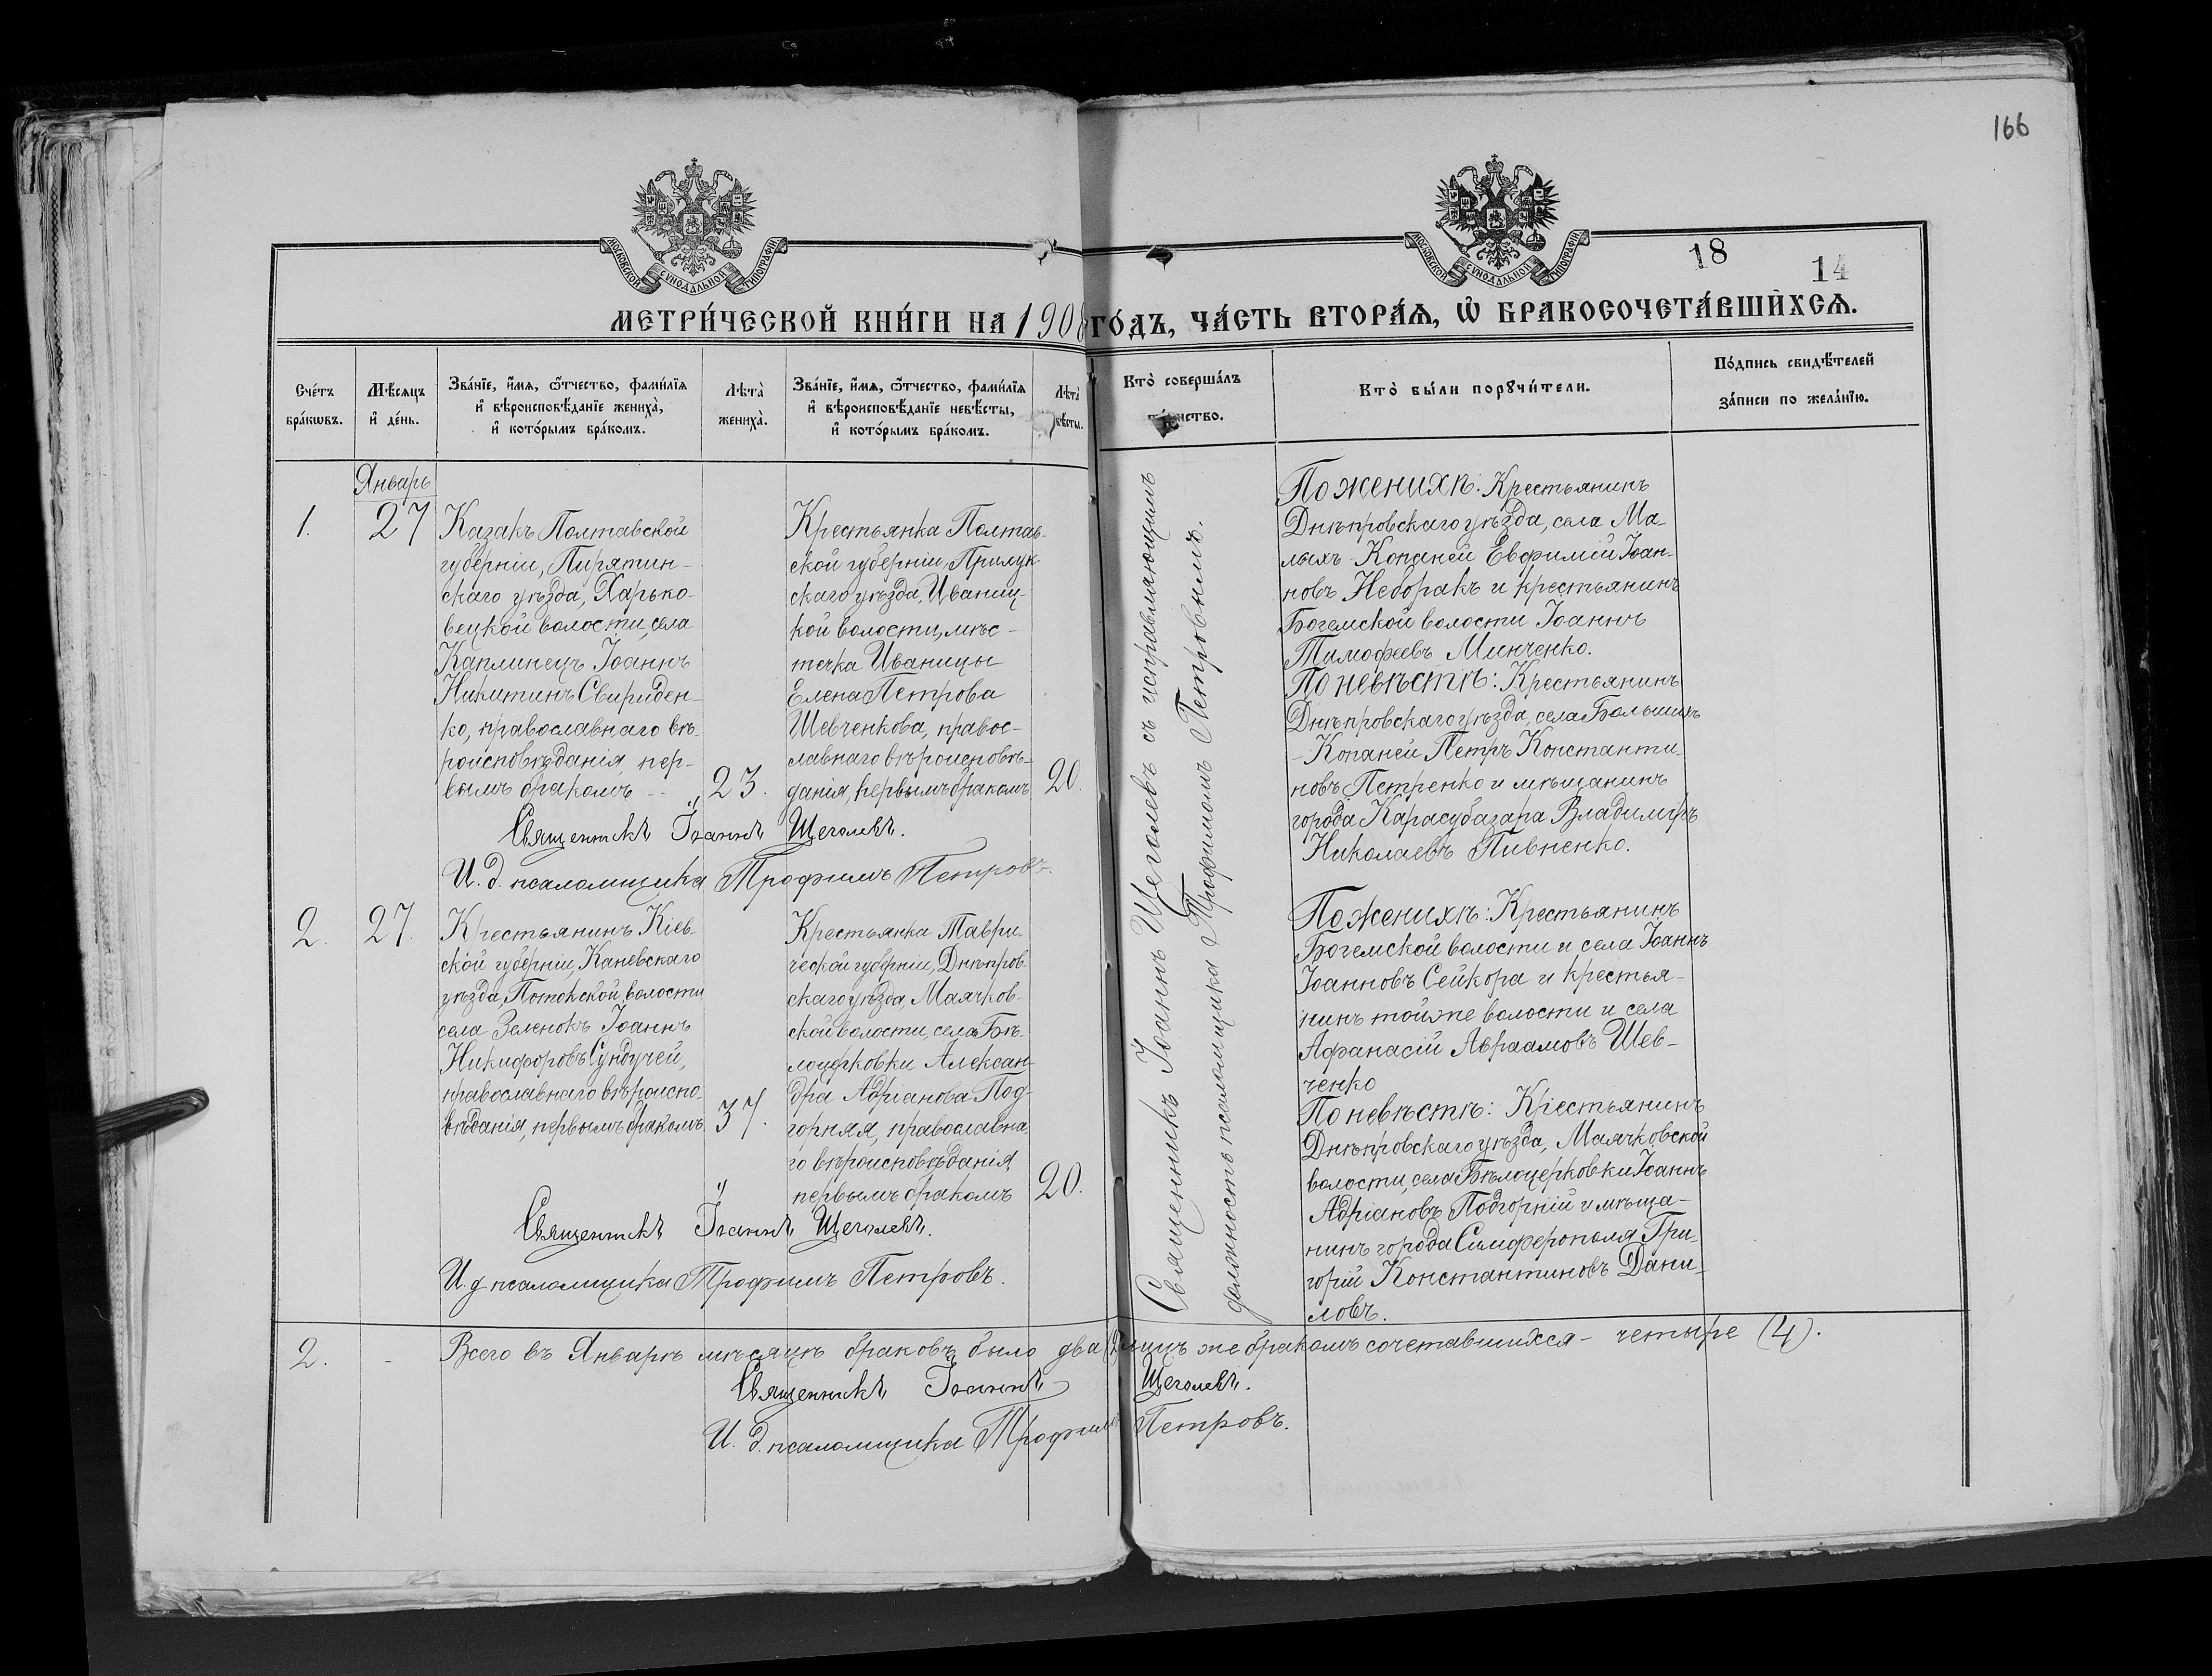 166
МОСКОВСКОЙ СѴНОДАЛЬНОЙ ТИПОГРАФІИ
МОСКОВСКОЙ СѴНОДАЛЬНОЙ ТИПОГРАФІИ
18
14
МЕТРИ́ЧЕСКОЙ КНИ́ГИ НА 1908 ГО́ДЪ, ЧА́СТЬ ВТОРА́Ѧ, Ѡ҆ БРАКОСОЧЕТА́ВШИХСѦ.
Сче́тъ
бра́кωвъ.
Мѣ́сяцъ
и҆ де́нь.
Зва́нїе, и҆́мѧ, ѻ҆́тчество, фами́лїѧ
и҆ вѣроисповѣ́данїе жениха̀,
и҆ кото́рымъ бра́комъ.
Лѣта̀
жениха̀.
Зва́нїе, и҆́мѧ, ѻ҆́тчество, фами́лїѧ
и҆ вѣроисповѣ́данїе невѣ́сты,
и҆ кото́рымъ бра́комъ.
Лѣта̀
вѣсты.
Кто̀ соверша́лъ
нство.
Кто̀ бы́ли порꙋчи́тели.
По́дпись свидѣ́телей
за́писи по жела́нїю.
Январь
1.
27
Казакъ Полтавской
губерніи, Пирятин-
скаго уѣзда, Харько-
вецкой волости, села
Каплинецъ Іоаннъ
Никитинъ Свириден-
ко, православнаго вѣ-
роисповѣданія, пер-
вымъ бракомъ
23.
Крестьянка Полтав-
ской губерніи, Прилук-
скаго уѣзда, Иваниц-
кой волости, мѣс-
течка Иваницы
Елена Петрова
Шевченкова, правос-
лавнаго вѣроисповѣ-
данія, первымъ бракомъ
20.
Священникъ Іоаннъ Щеголевъ.
И. д. псаломщика Трофимъ Петровъ.
Священникъ Іоаннъ Щеголевъ съ исправляющимъ
должность псаломщика Трофимомъ Петровымъ.
По женихѣ: Крестьянинъ
Днѣпровскаго уѣзда, села Ма-
лыхъ-Копаней Евфимій Іоан-
новъ Неборакъ и крестьянинъ
Богемской волости Іоаннъ
Тимофеевъ Минченко.
По невѣстѣ: Крестьянинъ
Днѣпровскаго уѣзда, села Большихъ
-Копаней Петръ Константи-
новъ Петренко и мѣщанинъ
города Карасубазара Владиміръ
Николаевъ Пивненко.
2.
27.
Крестьянинъ Кіев-
ской губерніи, Каневскаго
уѣзда, Потокской волости
села Зеленокъ Іоаннъ
Никифоровъ Сундучей,
православнаго вѣроиспо-
вѣданія, первымъ бракомъ
37.
Крестьянка Таври-
ческой губерніи, Днѣпров-
скаго уѣзда, Маячков-
ской волости, села Бѣ-
лоцерковки Алексан-
дра Адріанова Под-
горняя, православна-
го вѣроисповѣданія,
первымъ бракомъ
20.
Священникъ Іоаннъ Щеголевъ.
И. д. псаломщика Трофимъ Петровъ.
По женихѣ: Крестьянинъ
Богемской волости и села Іоаннъ
Іоанновъ Сейкора и крестья-
нинъ той же волости и села
Афанасій Авраамовъ Шев-
ченко
По невѣстѣ: Крестьянинъ
Днѣпровскаго уѣзда, Маячковской
волости, села Бѣлоцерковки Іоаннъ
Адріановъ Подгорній и мѣща-
нинъ города Симферополя Гри-
горій Константиновъ Дани-
ловъ.
2. - Всего въ Январѣ мѣсяцѣ браковъ было два (2) лицъ же бракомъ сочетавшихся - четыре (4).
Священникъ Іоаннъ Щеголевъ.
И. д. псаломщика Трофимъ Петровъ.